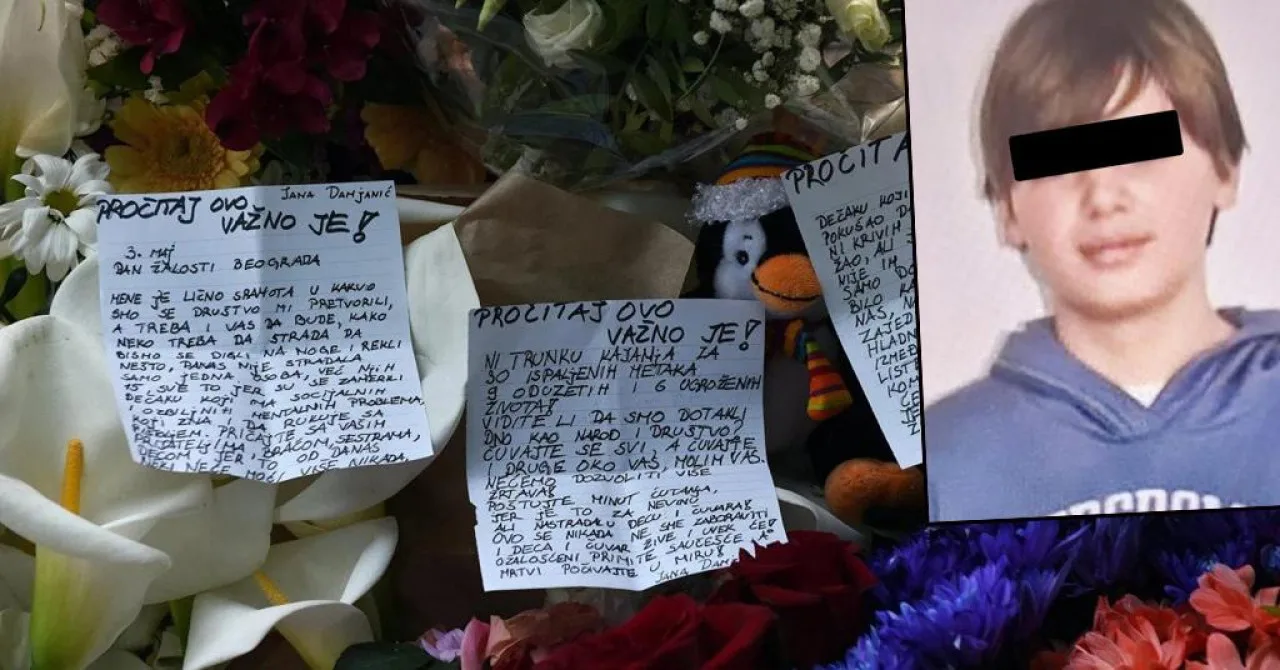 JANA DAMJANIĆ
PROČITAJ OVO
VAŽNO JE!
3. MAJ
DAN ŽALOSTI BEOGRADA
MENE JE LIČNO SRAMOTA U KAKVO
SMO SE DRUŠTVO MI PRETVORILI,
A TREBA I VAS DA BUDE, KAKO
NEKO TREBA DA STRADA DA
BISMO SE DIGLI NA NOGE I REKLI
NEŠTO, DANAS NIJE STRADALA
SAMO JEDNA OSOBA, VEĆ NJIH
15 SVE TO JER SU SE ZAMERILI
DEČAKU KOJI IMA SOCIJALNIH
I OZBILJNIH MENTALNIH PROBLEMA,
KOJI ZNA I DA RUKUJE SA
PRIČAJTE SA VAŠIM
PRIJATELJIMA, BRAĆOM, SESTRAMA,
DECOM JER TO OD DANAS
NEKI NEĆE MOĆI VIŠE NIKADA.
PROČITAJ OVO
VAŽNO JE!
NI TRUNKU KAJANJA ZA
50 ISPALJENIH METAKA
9 ODUZETIH I 6 UGROŽENIH
ŽIVOTA!
VIDITE LI DA SMO DOTAKLI
DNO KAO NAROD I DRUŠTVO?
ČUVAJTE SE SVI, A ČUVAJTE
I DRUGE OKO VAS, MOLIM VAS.
NEĆEMO DOZVOLITI VIŠE
ŽRTAVA!
POŠTUJTE MINUT ĆUTANJA,
JER JE TO ZA NEVINO
ALI NASTRADALU DECU I ČUVARA!
OVO SE NIKADA NE SME ZABORAVITI
I DECA I ČUVAR ŽIVE UVEK ĆE!
OŽALOŠĆENI PRIMITE SAUČEŠĆE A
MRTVI POČIVAJTE U MIRU!
JANA DAM
PROČITA
DEČAKU KOJI
POKUŠAO DA
NI KRIVIH
ŽAO, ALI
NIJE IH
SAMO
BILO KA
NAS, NA
ZAJED
HLADN
IZMEĐ
LIST
KOM